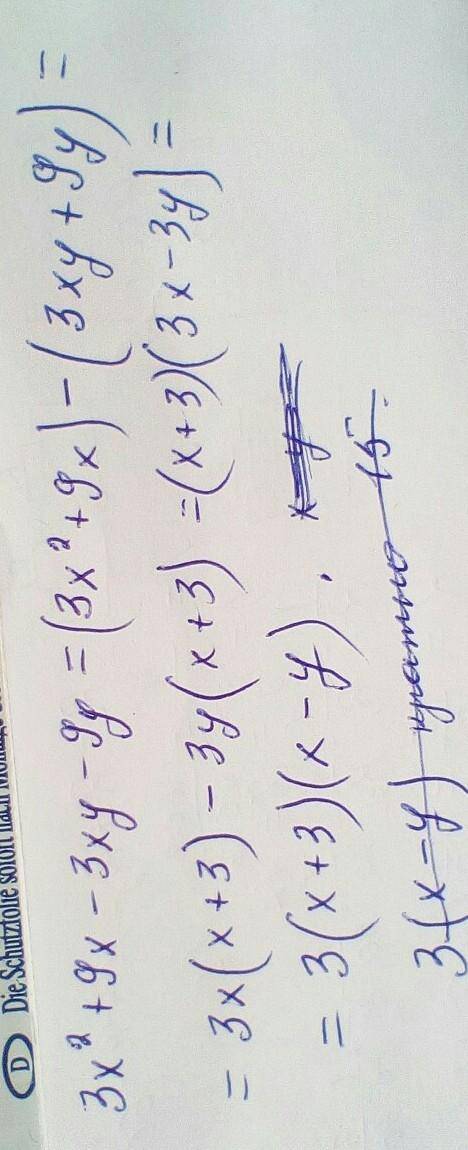 D Die Schutzfolie sofort nach
3x² + 9x - 3xy - 9y = (3x² + 9x) - (3xy + 9y) =
= 3x(x+3) - 3y(x+3) = (x+3)(3x-3y) =
= 3(x+3)(x-y).
3(x-y) кратно 15.